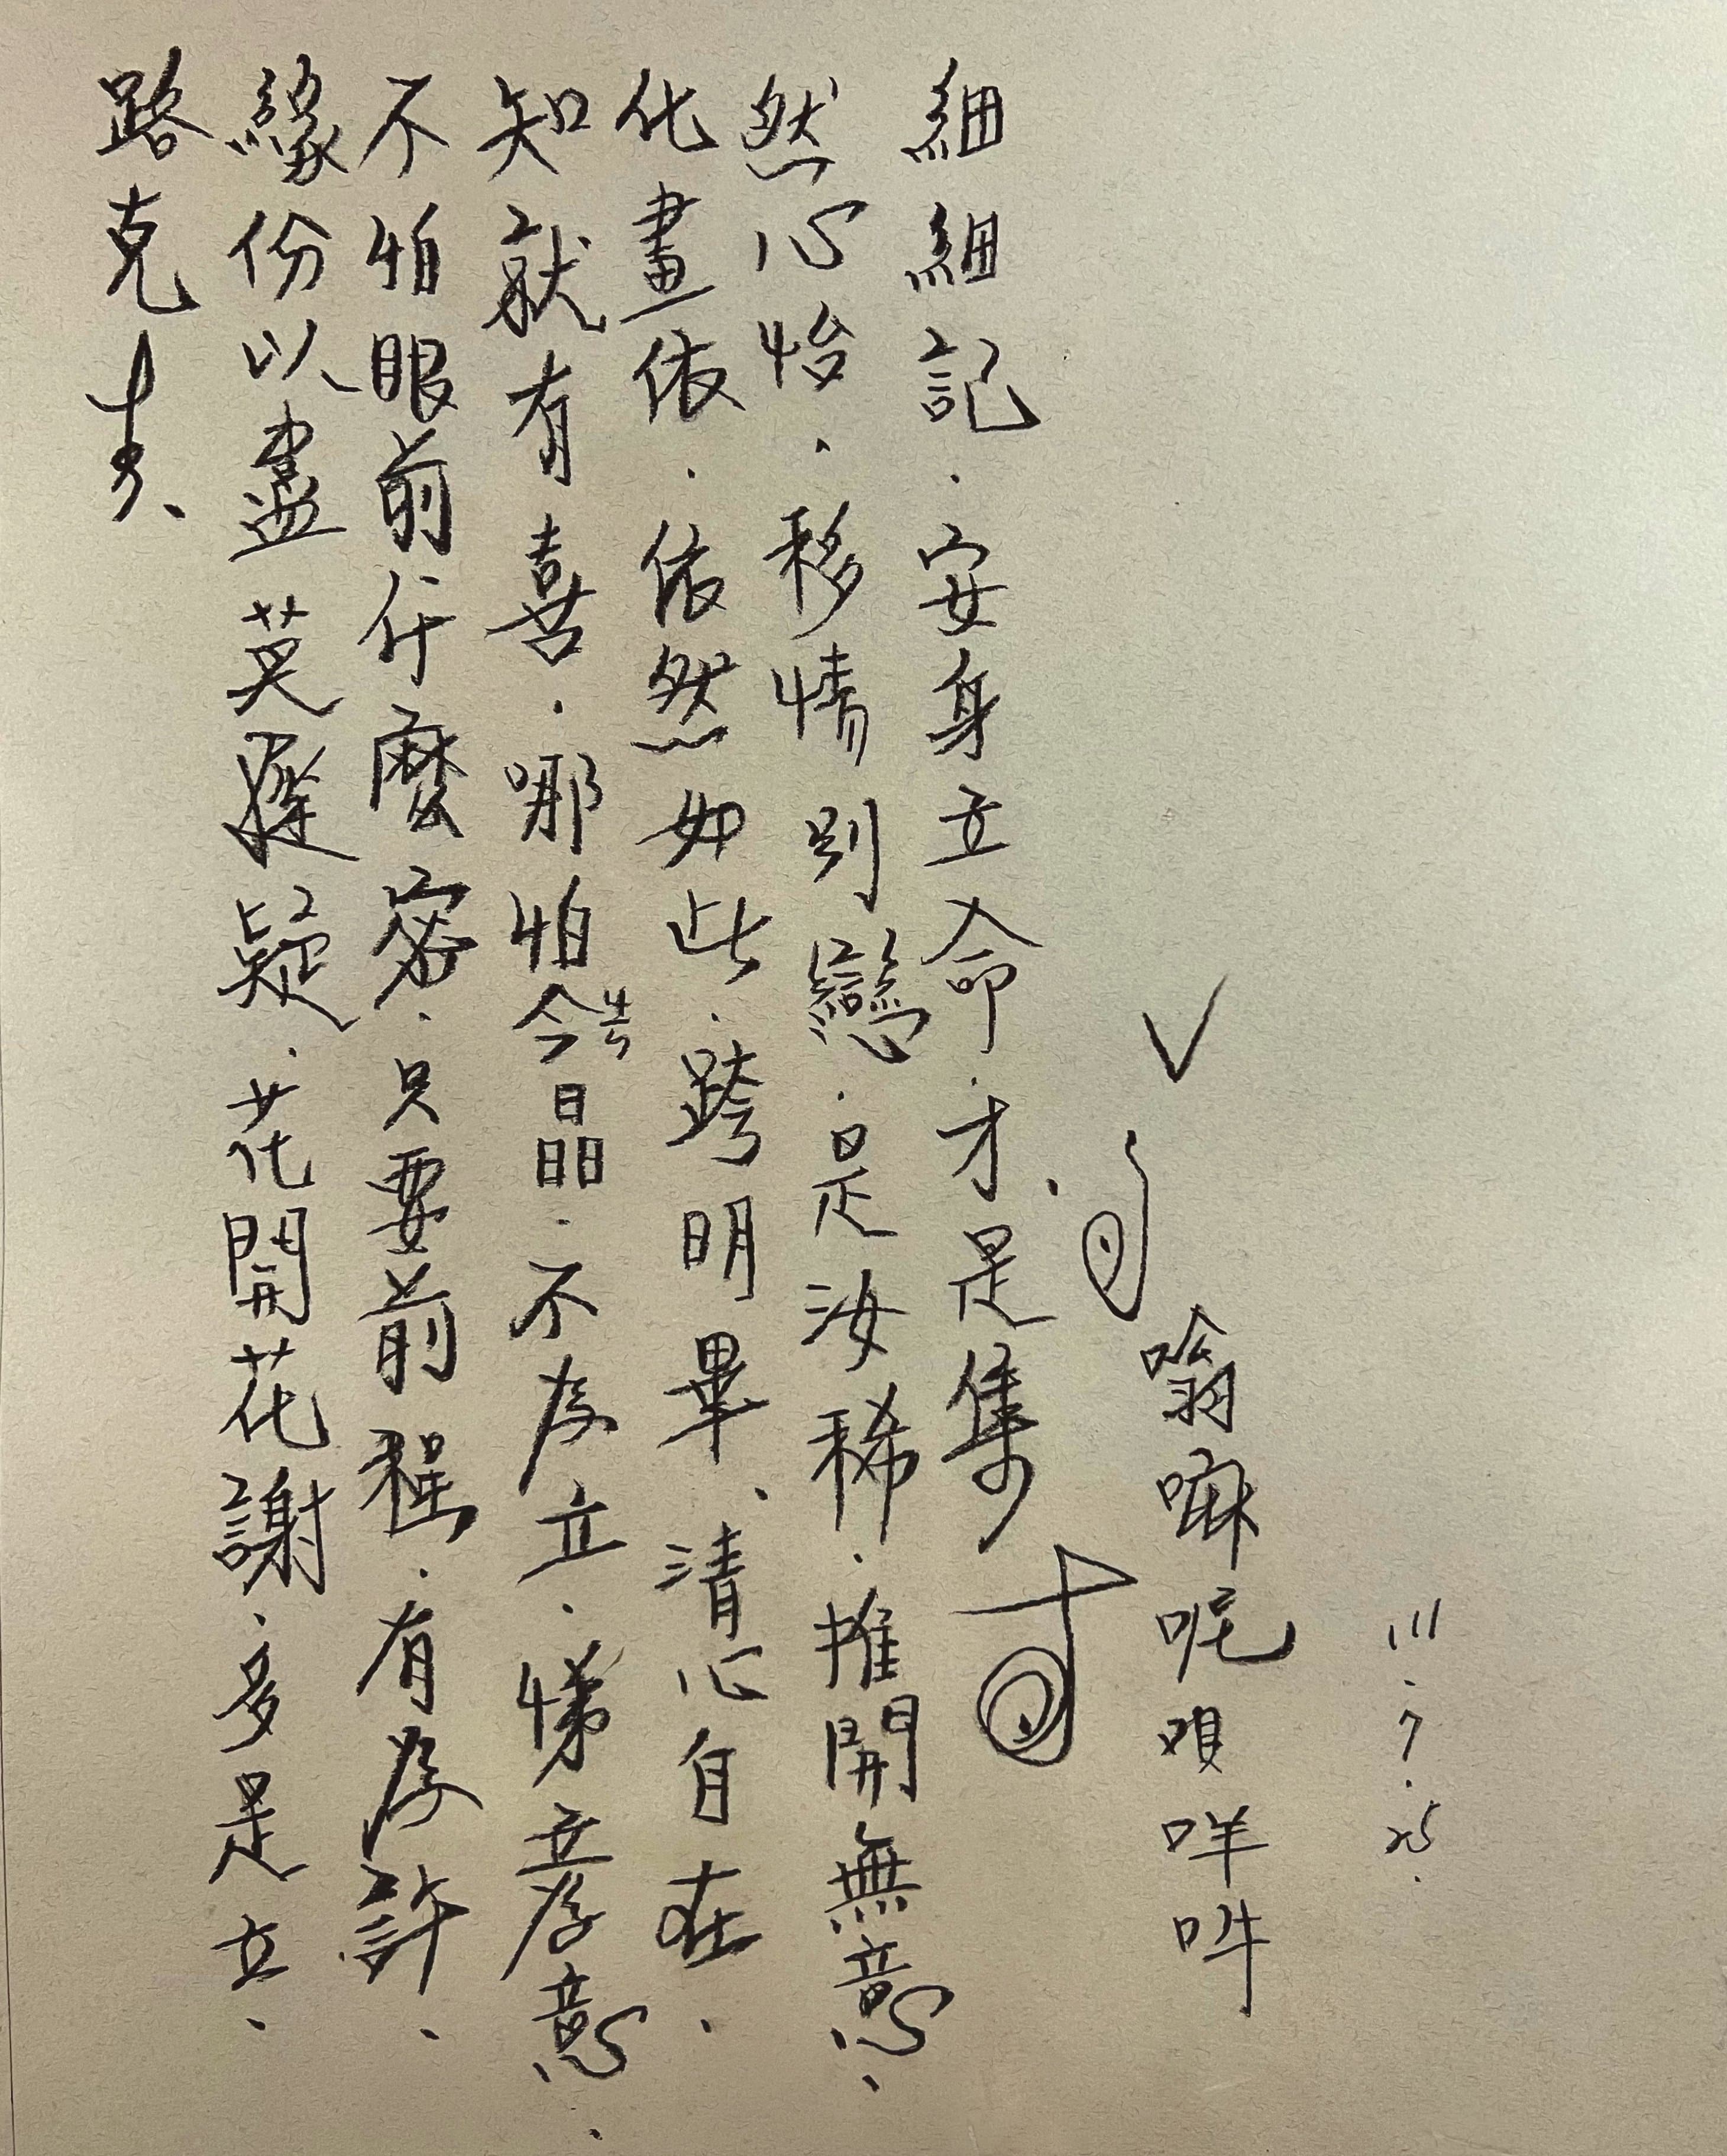 111.7.25.
嗡嘛呢唄咩吽
細細記.安身立命.才是集
然心怡.移情別戀.是汝稀.推開無意、
化畫依.依然如此.跨明畢、清心自在.
知就有喜.哪怕 晶.不為立.悌立孝意.
不怕眼前什麼密.只要前程.有為許、
緣份以盡莫遲疑.花開花謝.多是立、
路克